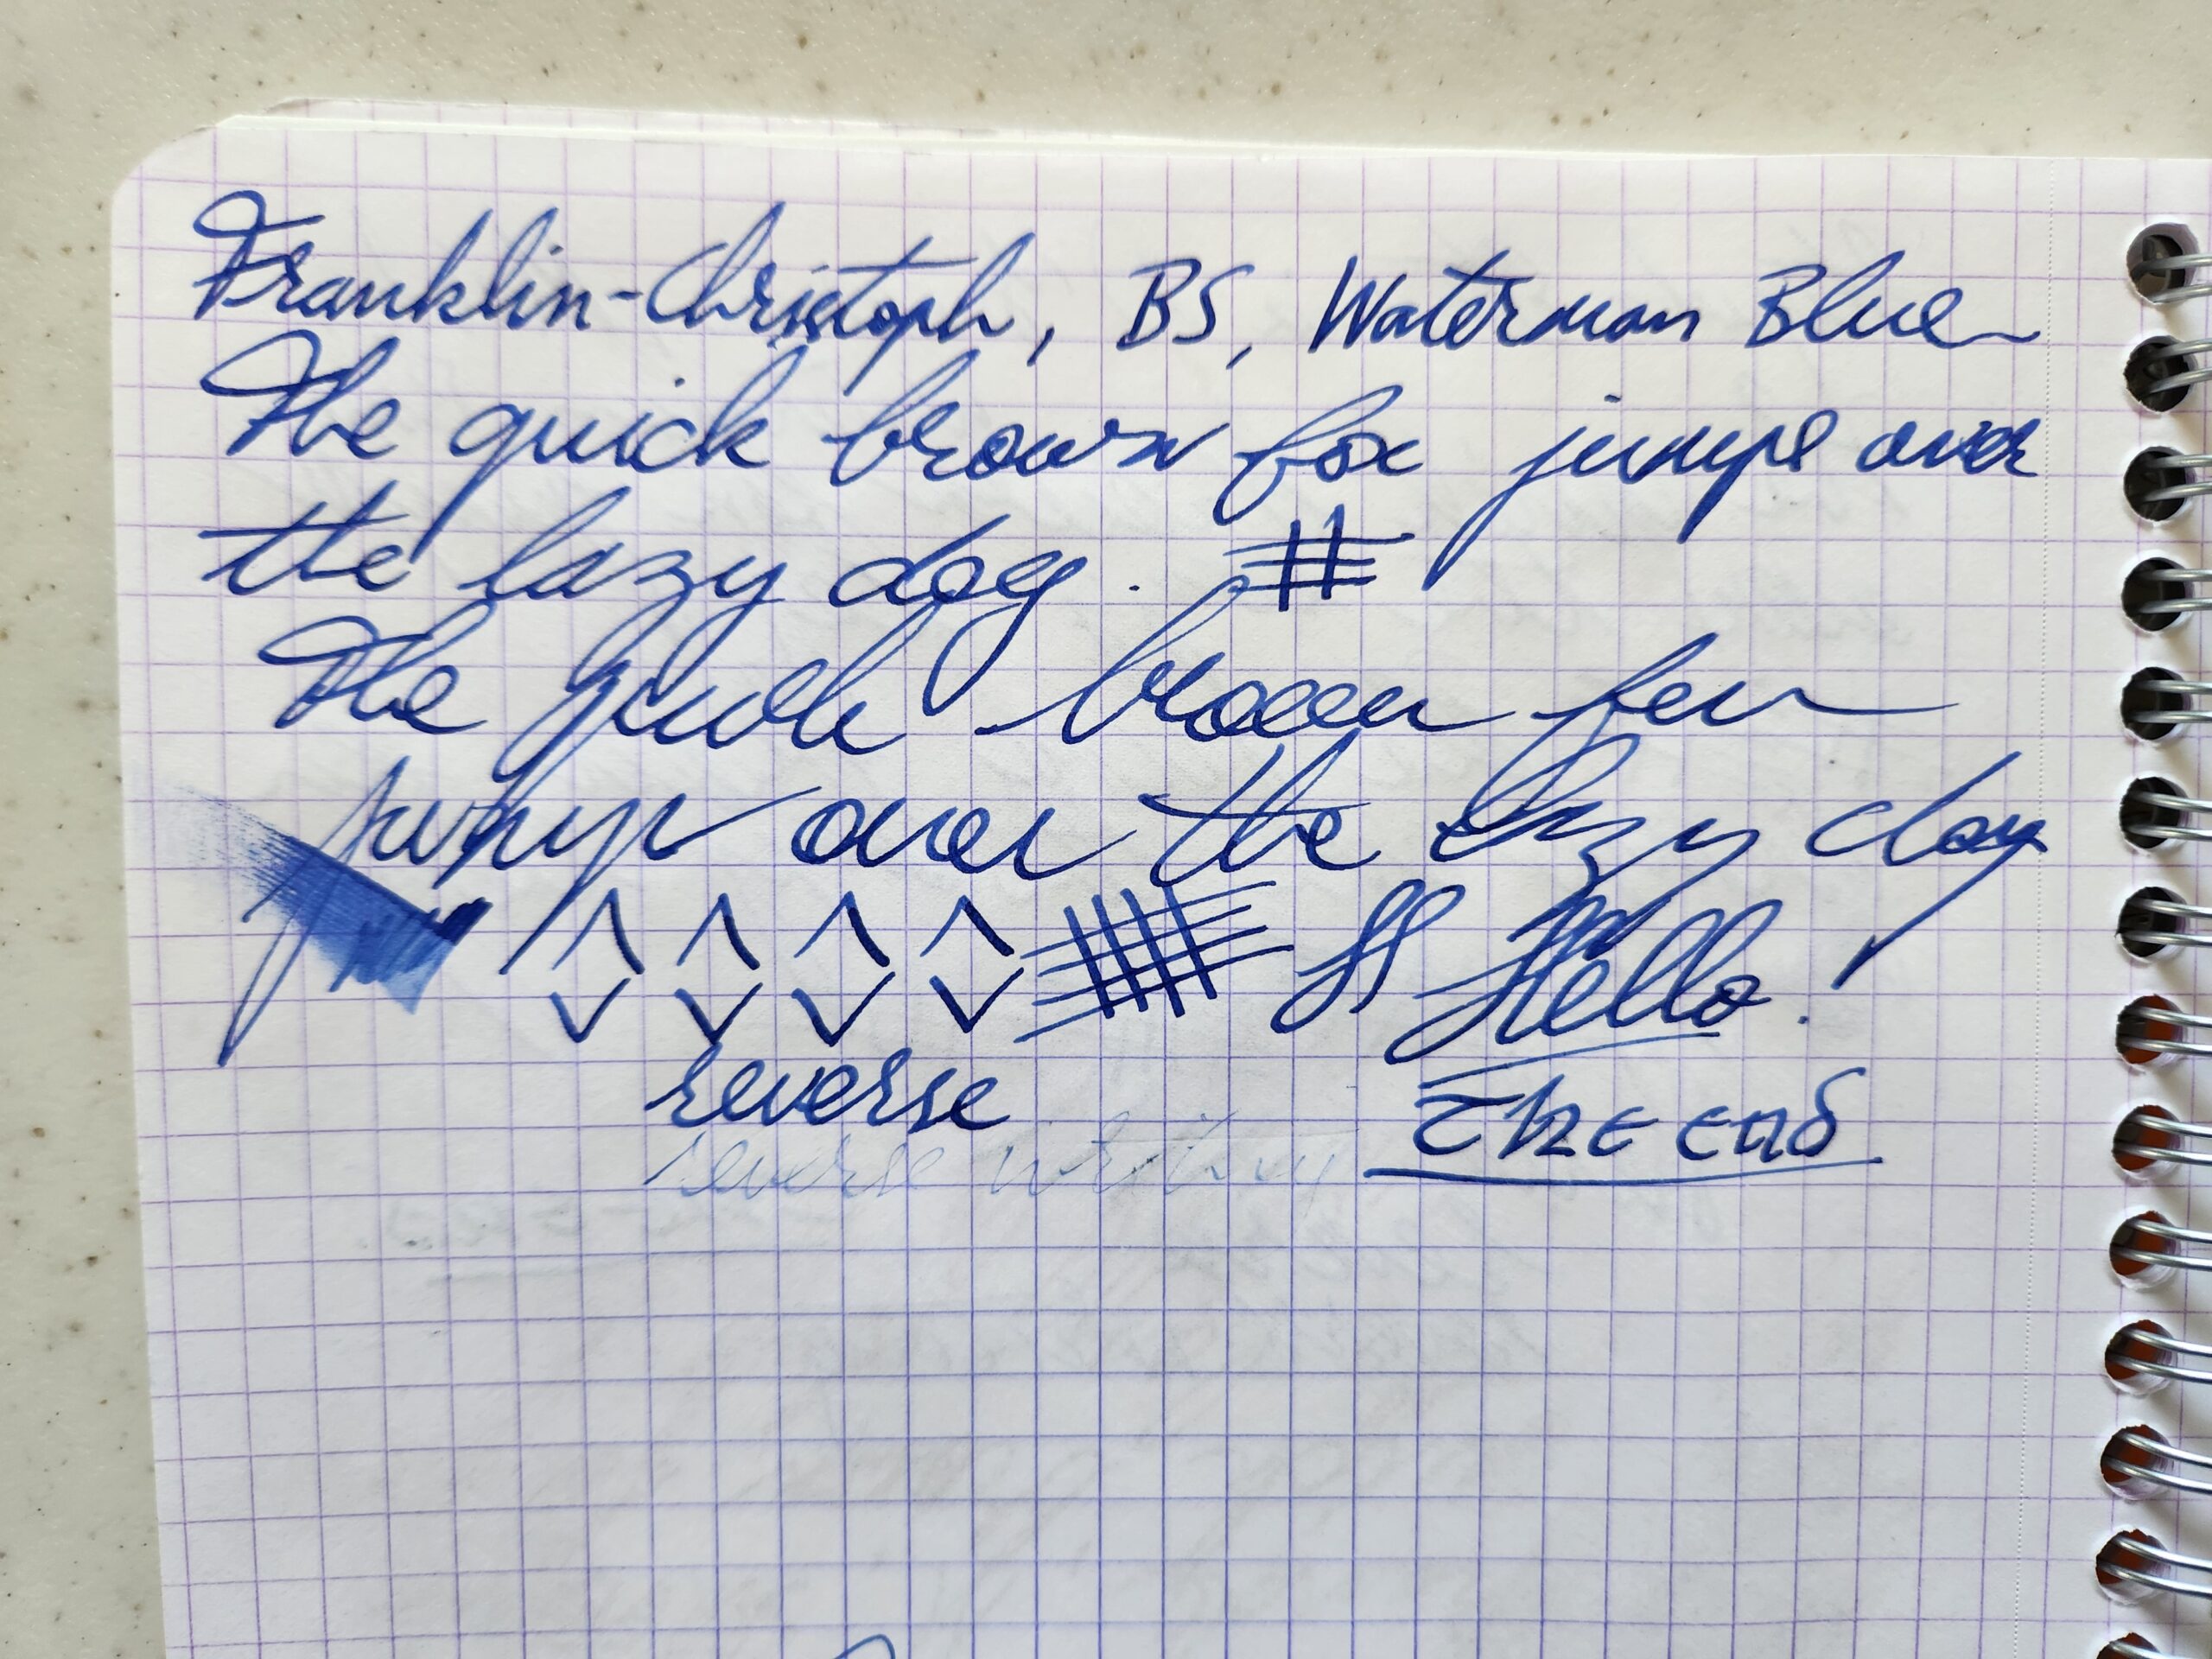 Franklin-Christoph, BS, Waterman Blue
The quick brown fox jumps over
the lazy dog. #
The quick brown fox
jumps over the lazy dog
ff Hello!
reverse
reverse writing
The end